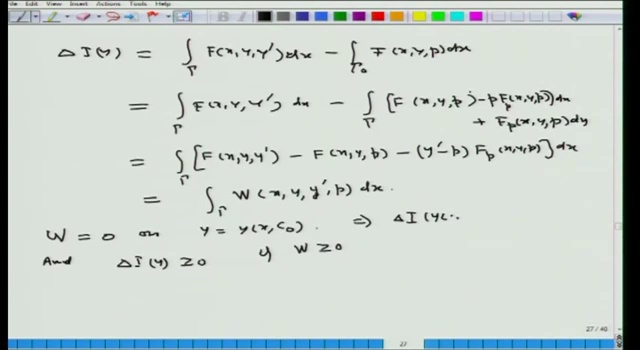 File View Insert Actions Tools Help
Δ I(y) = ∫_Γ F(x,y,y')dx - ∫_Γ₀ F(x,y,p)dx
= ∫_Γ F(x,y,y') dx - ∫_Γ [F(x,y,p) - p F_p(x,y,p)]dx
+ F_p(x,y,p)dy
= ∫_Γ [F(x,y,y') - F(x,y,p) - (y'-p) F_p(x,y,p)]dx
= ∫_Γ W(x,y,y',p) dx.
W = 0 on y = y(x,C₀). ⇒ Δ I(y(.
And Δ I(y) ≥ 0 if W ≥ 0
27 / 40
27